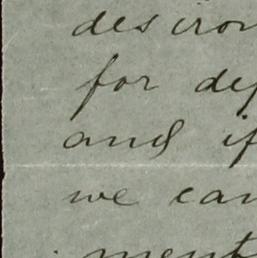 desiron
for dep
and if
we can
ment